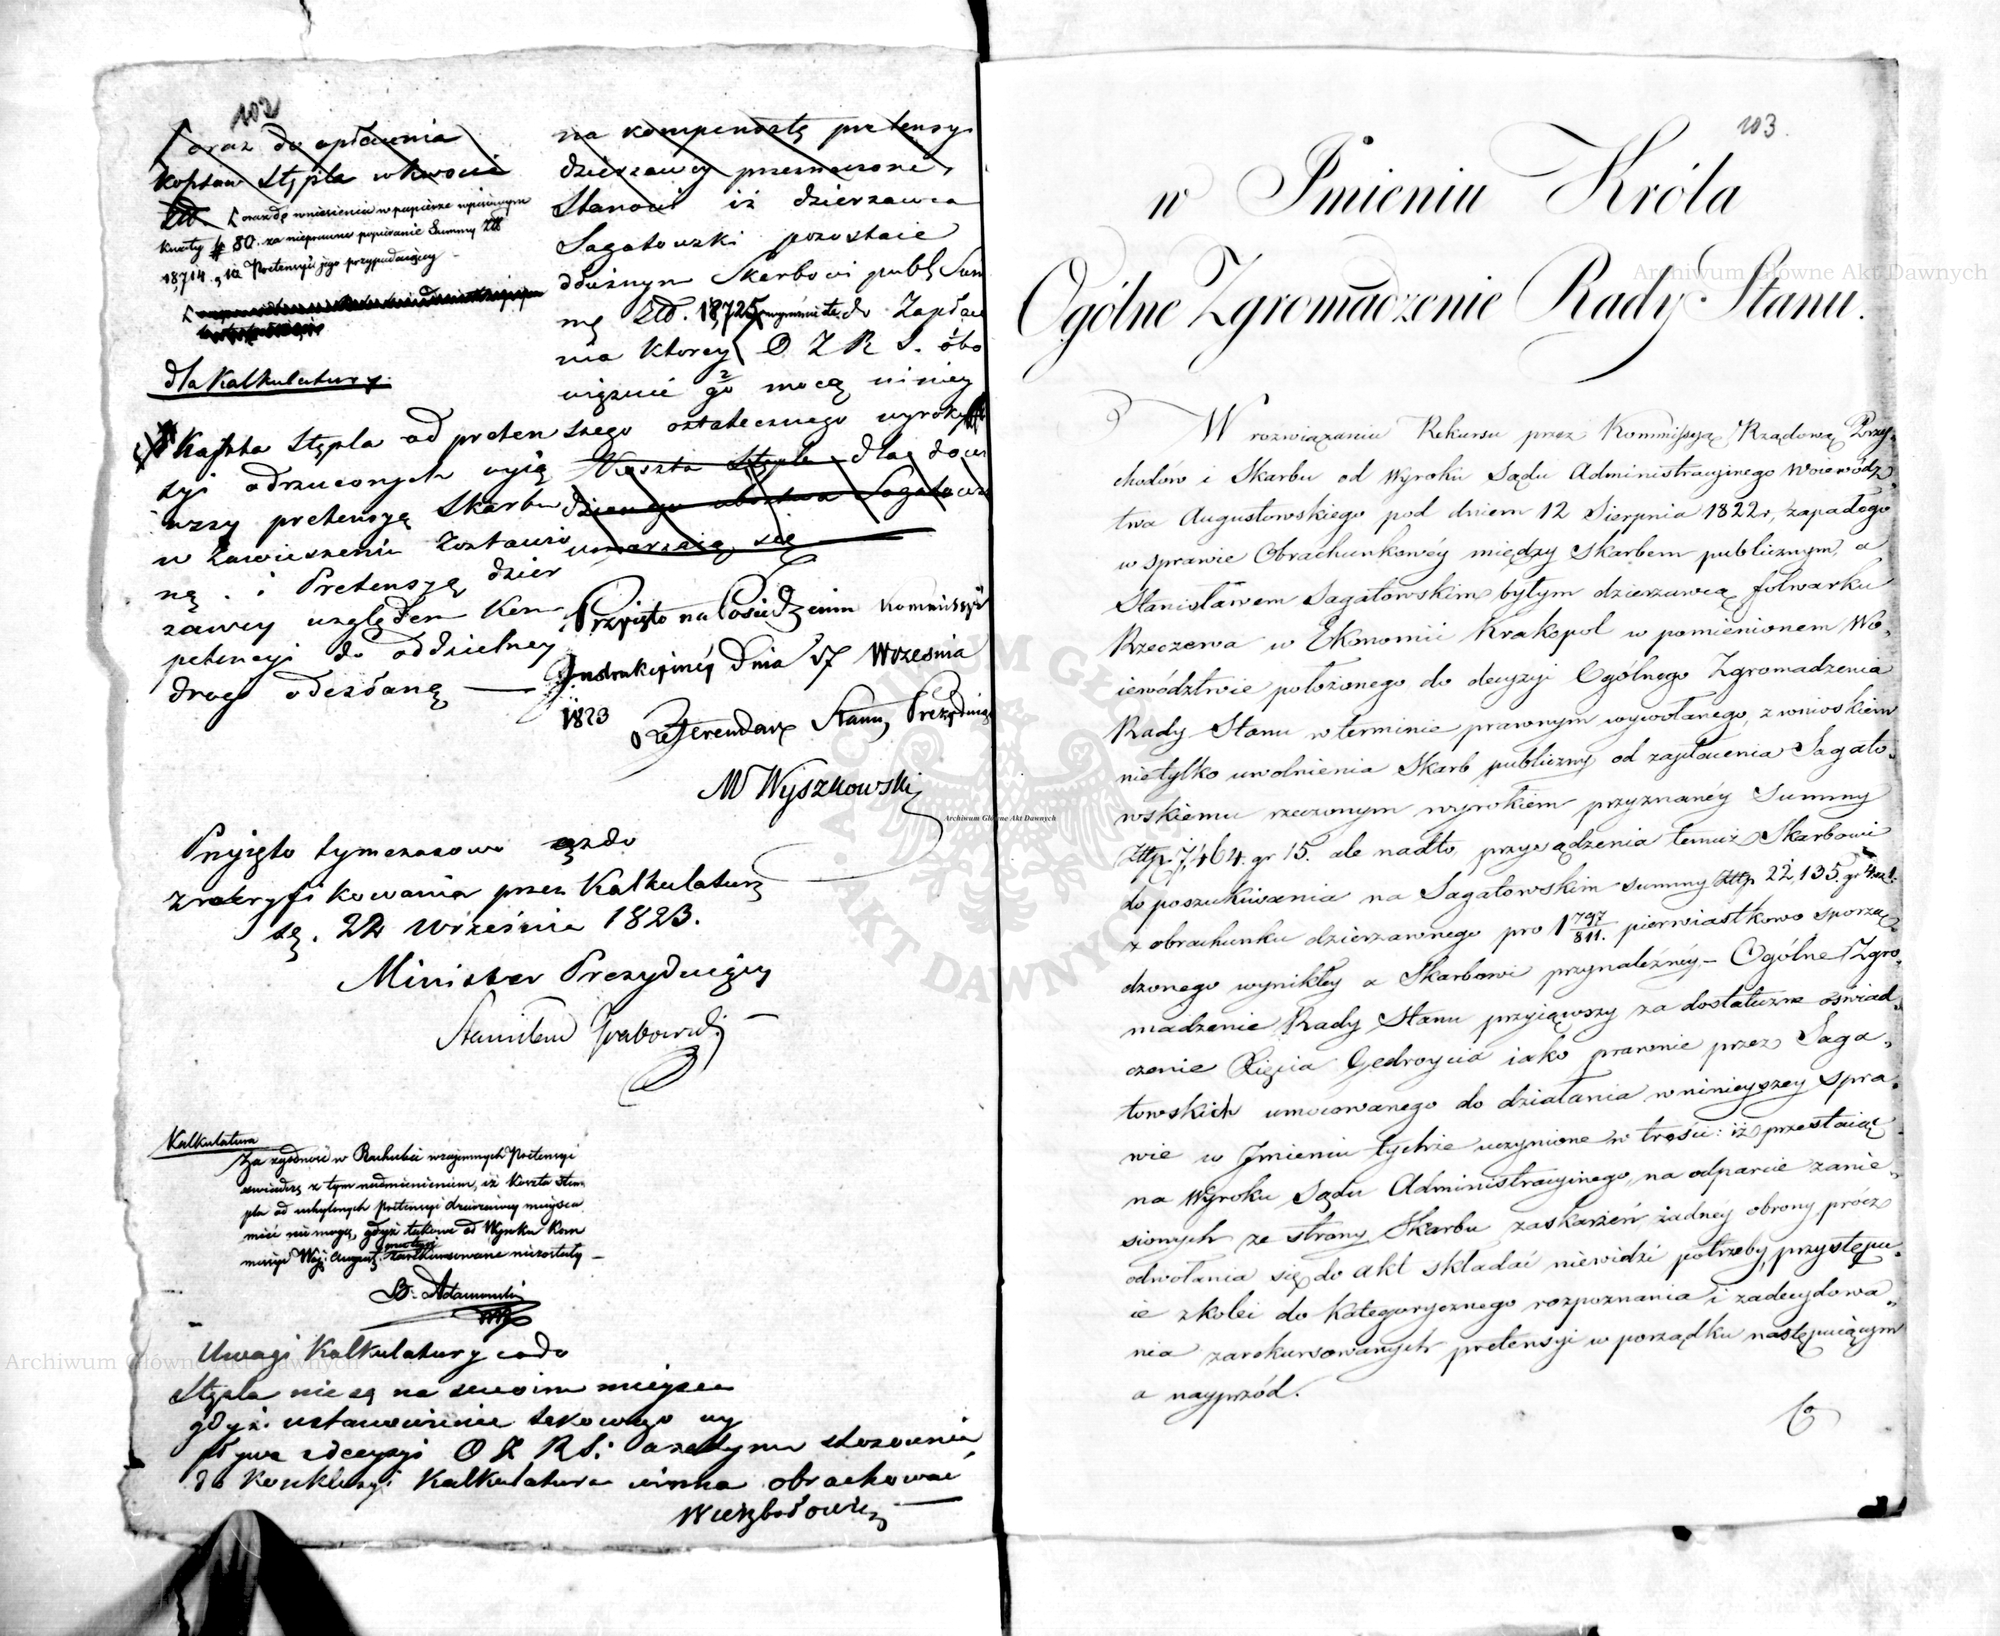 102
oraz do opłacenia
kosztów Stępla w kwocie
Złł. oraz do wniesienia w papierze wpisowym
kwoty # 80. za nieprawne popieranie Summy Złł
18,714. Pretensyi jego przypadaiący
dla Kalkulatury.
Kaszta Stępla od preten
syi odrzuconych wyią
wszy pretensyą Skarbu
w Zawieszeniu Zostawio
ną. i Pretensyą dzier
zawcy względem Kom
petencyi do oddzielney
drogi odesłaną
na kompensatę pretensyi
dzierzawcy przeznaczone,
Stanowi iż dzierzawca
Sagatowski pozostaie
dłużnym Skarbowi publ. Sum
mę Złł. 18,725 do Zapłace
nia ktorey O. Z. R. S. obo
wiązuie go mocą niniey
szego ostatecznego wyroku
Koszta Stępla dla dowie
dzionego ubostwa Sagatowsk
umarzaią się
Przyięto na Posiedzeniu Kommissyi
Instrukcyinéy dnia 17 Września
1823 Referendarz Stanu Prezyduiąc
M Wyszkowski
Przyięto tymczasowo co do
zweryfikowania przez Kalkulaturę
22 Wrzesnia 1823.
Minister Prezyduiący
Stanisław Grabowski
Kalkulatura
Za zgodność w Rachubie wzaiemnych Pretensyi
zaswiadcza z tym nadmienieniem, iż koszta Stem
pla od uchylonych pretensyi dzierzawcy mieysca
mieć nie mogą, gdyż takowe od Wyroku Kom
missyi Woj: August. zarekursowane niezostały
B. Adamowski
Uwagi Kalkulatury co do
Stępla nie są na swoim mieyscu
gdyż ustanowienie takowego wy
pływa z decyzyi O Z R S: a zatym stosownie
do Konkluzyi Kalkulatura winna obrachować
Wierzbołowicz
103.
w Imieniu Króla
Ogólne Zgromadzenie Rady Stanu.
W rozwiązaniu Rekursu przez Kommissyą Rządową Przy-
chodów i Skarbu od Wyroku Sądu Administracyinego Wojewódz-
twa Augustowskiego pod dniem 12 Sierpnia 1822 r, zapadłego
w sprawie Obrachunkowéy między Skarbem publicznym, a
Stanisławem Sagatowskim byłym dzierzawcą folwarku
Rzeczewa w Ekonomii Krakopol w pomienionem Wo-
iewództwie położonego do decyzyi Ogólnego Zgromadzenia
Rady Stanu w terminie prawnym wywołanego, z wnioskiem
nietylko uwolnienia Skarb publiczny od zapłacenia Sagato-
wskiemu rzeczonym wyrokiem przyznanéy Summy
Złłp. 7,464. gr 15. ale nadto przysądzenia temuż Skarbowi
do poszukiwania na Sagatowskim summy Złłp 22,135. gr 4
z obrachunku dzierzawnego pro 1 797/811. pierwiastkowo sporzą-
dzonego wynikłey a Skarbowi przynależnéy,- Ogólne Zgro-
madzenie Rady Stanu przyiąwszy za dostateczne oświad-
czenie Xięcia Gedroycia iako prawnie przez Saga-
towskich umocowanego do działania w ninieyszey Spra-
wie w Imieniu tychże uczynione w treści: iż przestaiąc
na Wyroku Sądu Administracyinego, na odparcie zanie-
sionych ze strony Skarbu zaskarżeń żadney obrony prócz
odwołania się do akt składać niewidzi potrzeby, przystępu-
ie z kolei do kategorycznego rozpoznania i zadecydowa-
nia zarekursowanych pretensyi w porządku następuiącym
a nayprzód.
Co
Archiwum Główne Akt Dawnych